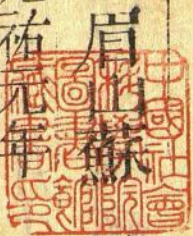 眉山蘇
祐元年
中國社會
科學院
圖書館
藏書印